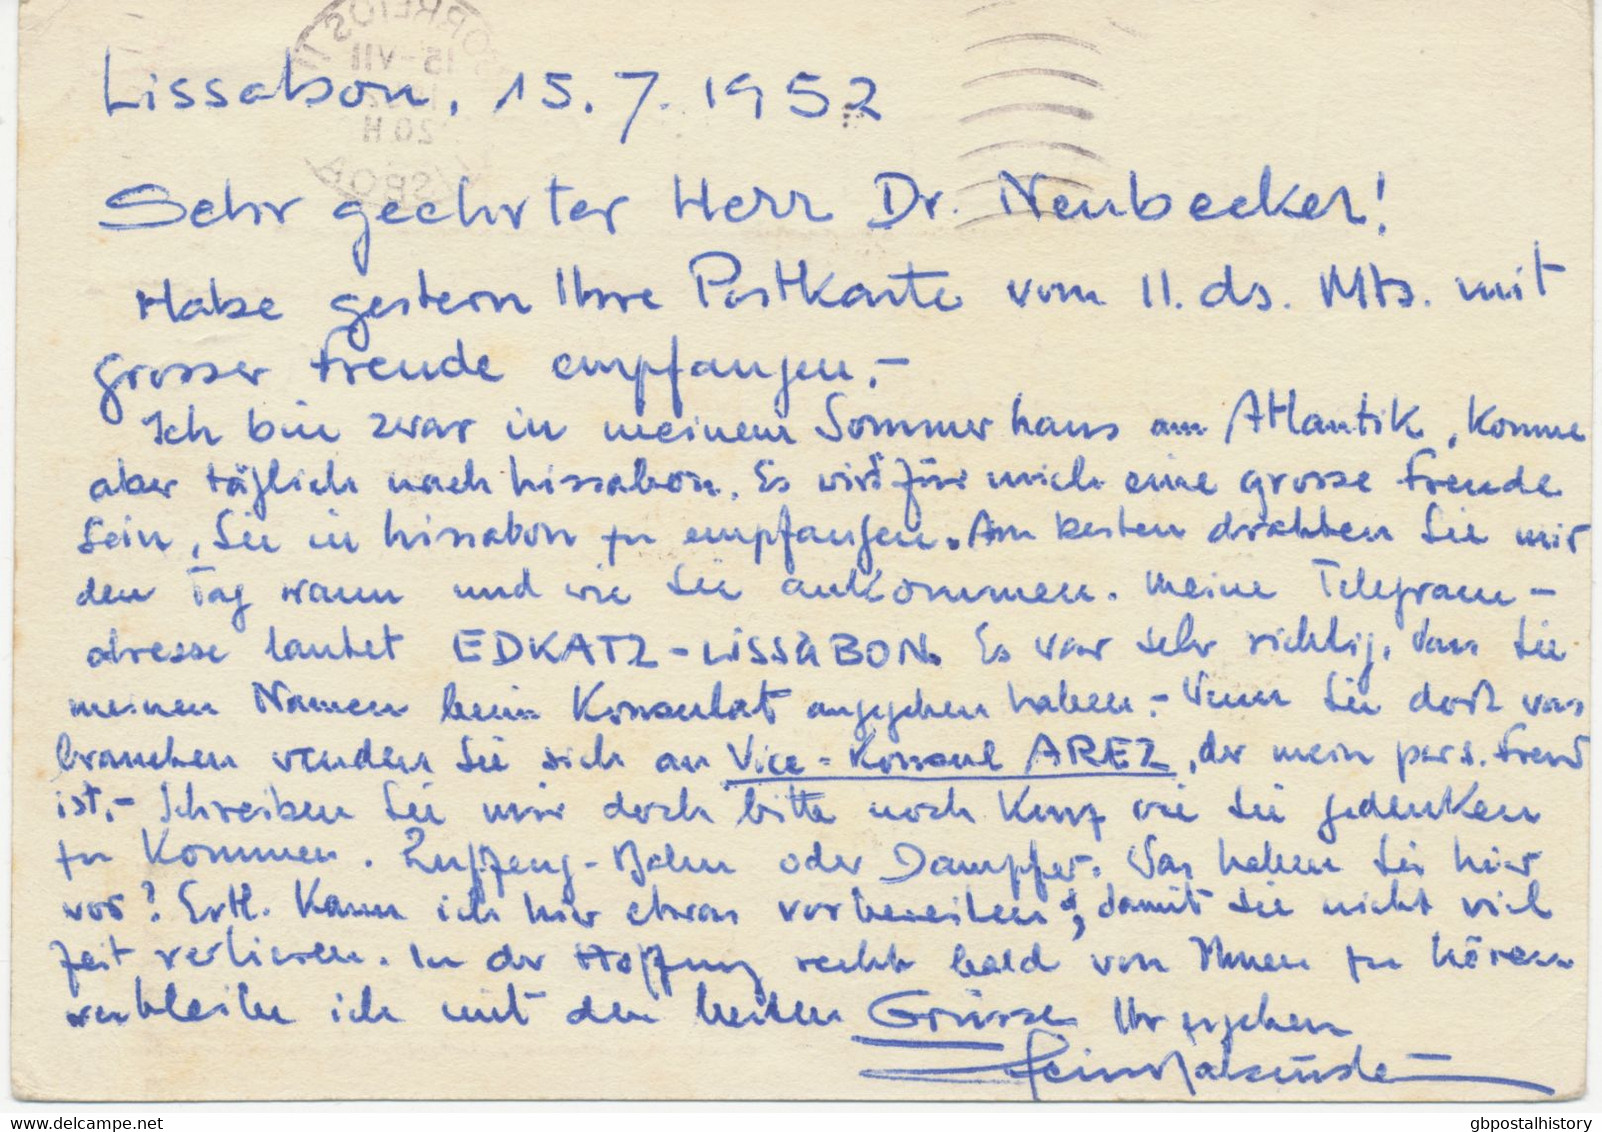 Lissabon, 15.7.1952
Sehr geehrter Herr Dr. Neubecker!
Habe gestern Ihre Postkarte vom 11. ds. Mts. mit
grosser Freude empfangen.-
Ich bin zwar in meinem Sommerhaus am Atlantik, komme
aber täglich nach Lissabon. Es wird für mich eine grosse Freude
sein, Sie in Lissabon zu empfangen. Am besten drahten Sie mir
den Tag wann und wie Sie ankommen. Meine Telegram-
adresse lautet EDKATZ-LISSABON. Es war sehr richtig, dass Sie
meinen Namen beim Konsulat angegeben haben.- Wenn Sie dort was
brauchen wenden Sie sich an Vice-Konsul AREZ, der mein pers. Freund
ist.- Schreiben Sie mir doch bitte noch kurz wie Sie gedenken
zu kommen. Flugzeug-Bahn oder Dampfer. Was haben Sie hier
vor? Evtl. kann ich hier etwas vorbereiten, damit Sie nicht viel
Zeit verlieren. In der Hoffnung recht bald von Ihnen zu hören
verbleibe ich mit den besten Grüssen Ihr ergebener
CORREIOS
15-VII
20 H
LISBOA
gbpostalhistory.com
gbpostalhistory